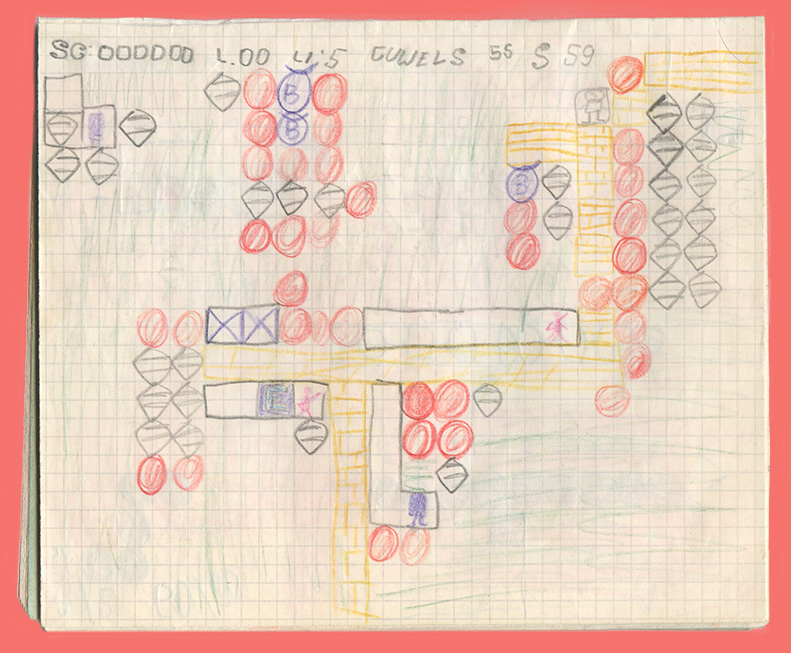 SC:000000 L.00 LI:5 GUWELS 55 S 59
B
B
B
E